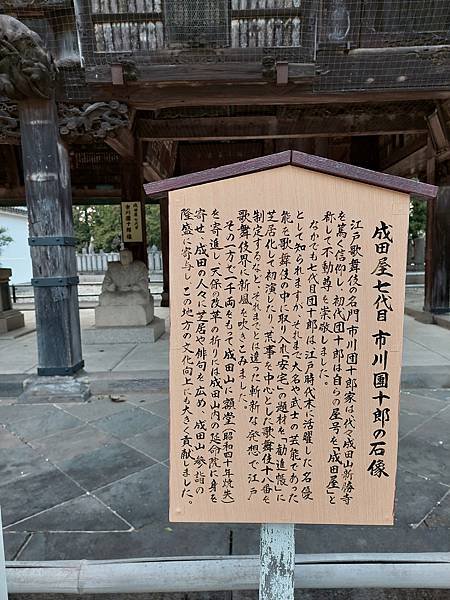 成田屋七代目 市川團十郎の石像
江戸歌舞伎の名門市川団十郎家は代々成田山新勝寺
を篤く信仰し、初代団十郎は自らの屋号を「成田屋」と
称して不動尊を崇敬しました。
なかでも七代目団十郎は、江戸時代末に活躍した名優
として知られますが、それまで大名や武士の芸能であった
能を歌舞伎の中に取り入れ「安宅」の題材を「勧進帳」に
芝居化して初演したり、荒事を中心とした歌舞伎十八番を
制定するなど、それまでとは違った斬新な発想で江戸
歌舞伎界に新風を吹きこみました。
その一方で、一千両をもって成田山に額堂(昭和四十年焼失)
を寄進し、天保の改革の折りには成田山内の延命院に身を
寄せ、成田の人々に芝居や俳句を広め、成田山参詣の
隆盛に寄与し、この地方の文化向上にも大きく貢献しました。